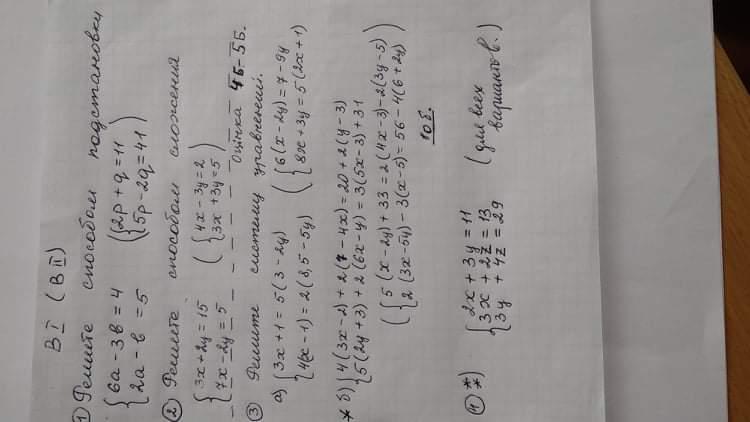 В I (В II)
① Решите способом подстановки
{6a - 3b = 4
2a - b = 5
({2p + q = 11
5p - 2q = 41)
② Решите способом сложения
{3x + 2y = 15
7x - 2y = 5
({4x - 3y = 2
3x + 3y = 5)
оцінка 4б - 5б.
③ Решите систему уравнений.
а) {3x + 1 = 5(3 - 2y)
4(x - 1) = 2(8,5 - 5y)
({6(x - 2y) = 7 - 9y
8x + 3y = 5(2x + 1)
* б) {4(3x - 2) + 2(7 - 4x) = 20 + 2(y - 3)
5(2y + 3) + 2(6x - y) = 3(5x - 3) + 31
({5(x - 2y) + 33 = 2(4x - 3) - 2(3y - 5)
2(3x - 5y) - 3(x - 5) = 56 - 4(6 + 2y))
10 б.
④ **) {2x + 3y = 11
3x + 2z = 13
3y + 4z = 29
(для всех вариантов.)